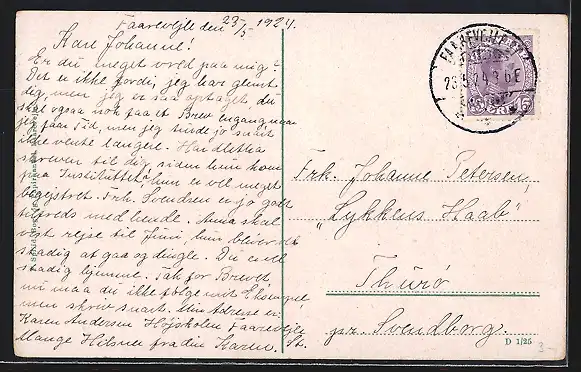 Faarevejle den 23/5 1924.
Kære Johanne!
Er du meget vred paa mig?
Det er ikke fordi, jeg har glemt
dig, men jeg er saa optaget, du
skal ogsaa nok faa et Brev engang naar
jeg faar Tid, men jeg turde jo snart
ikke vente længere. Har
skrevet til dig siden hun kom
paa Instituttet, hun er vel meget
begejstret. Frk. Svendsen er jo godt
tilfreds med hende. Anna skal
vist rejse til Juni, hun bliver
stadig at gaa og
stadig hjemme. Tak for Brevet
nu maa du ikke følge mit Eksempel,
men skriv snart. Min Adresse er:
Karen Andersen Højskolen Faarevejle St.
Mange Hilsner fra din Karen.
Frk. Johanne Petersen,
"Lykkens Haab"
Thurø
pr. Svendborg.
FAAREVEJLE
23.5.24. 3-6E
15
D 1/25
3-